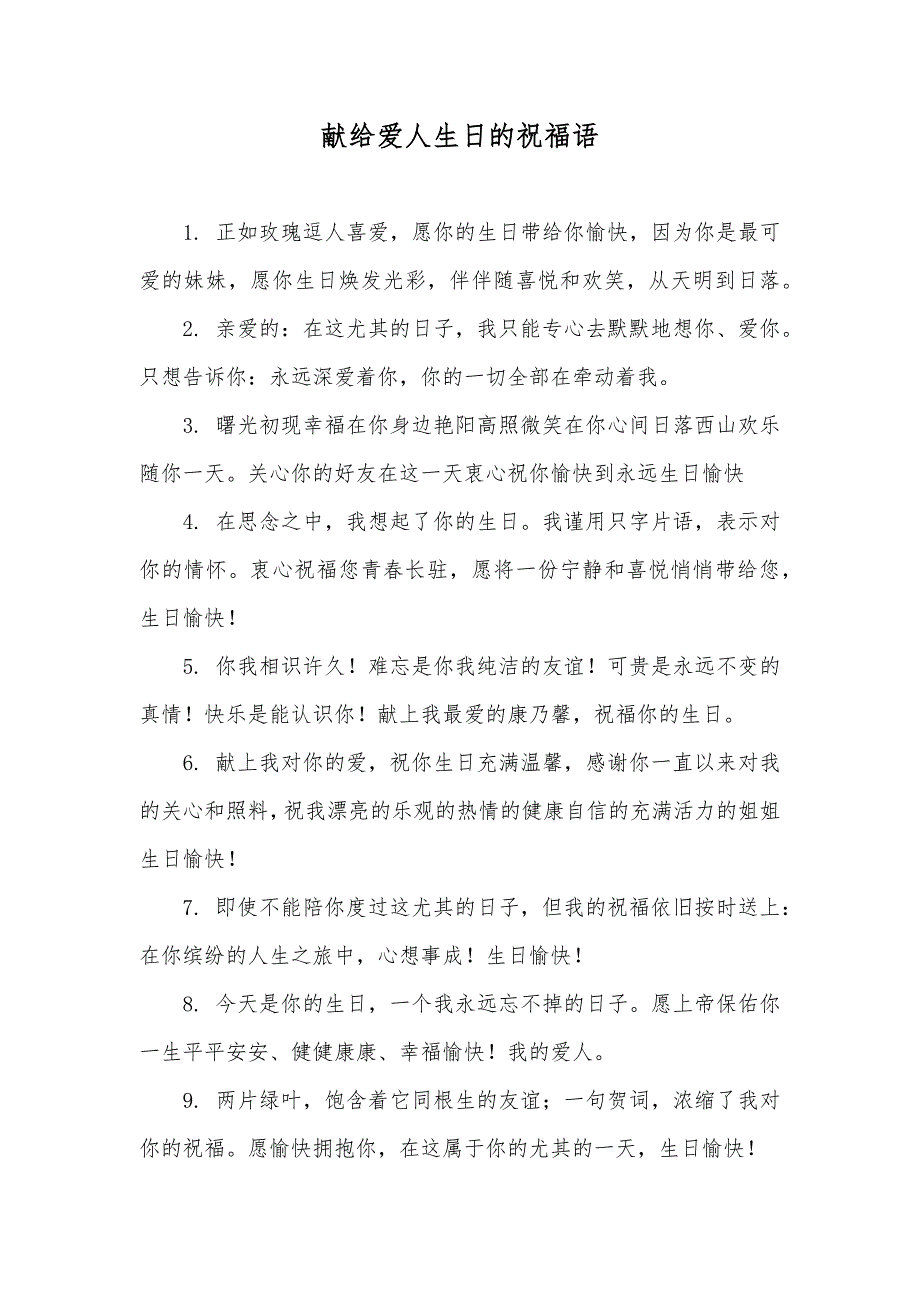 献给爱人生日的祝福语
1. 正如玫瑰逗人喜爱，愿你的生日带给你愉快，因为你是最可
爱的妹妹，愿你生日焕发光彩，伴伴随喜悦和欢笑，从天明到日落。
2. 亲爱的：在这尤其的日子，我只能专心去默默地想你、爱你。
只想告诉你：永远深爱着你，你的一切全部在牵动着我。
3. 曙光初现幸福在你身边艳阳高照微笑在你心间日落西山欢乐
随你一天。关心你的好友在这一天衷心祝你愉快到永远生日愉快
4. 在思念之中，我想起了你的生日。我谨用只字片语，表示对
你的情怀。衷心祝福您青春长驻，愿将一份宁静和喜悦悄悄带给您，
生日愉快！
5. 你我相识许久！难忘是你我纯洁的友谊！可贵是永远不变的
真情！快乐是能认识你！献上我最爱的康乃馨，祝福你的生日。
6. 献上我对你的爱，祝你生日充满温馨，感谢你一直以来对我
的关心和照料，祝我漂亮的乐观的热情的健康自信的充满活力的姐姐
生日愉快！
7. 即使不能陪你度过这尤其的日子，但我的祝福依旧按时送上：
在你缤纷的人生之旅中，心想事成！生日愉快！
8. 今天是你的生日，一个我永远忘不掉的日子。愿上帝保佑你
一生平平安安、健健康康、幸福愉快！我的爱人。
9. 两片绿叶，饱含着它同根生的友谊；一句贺词，浓缩了我对
你的祝福。愿愉快拥抱你，在这属于你的尤其的一天，生日愉快！